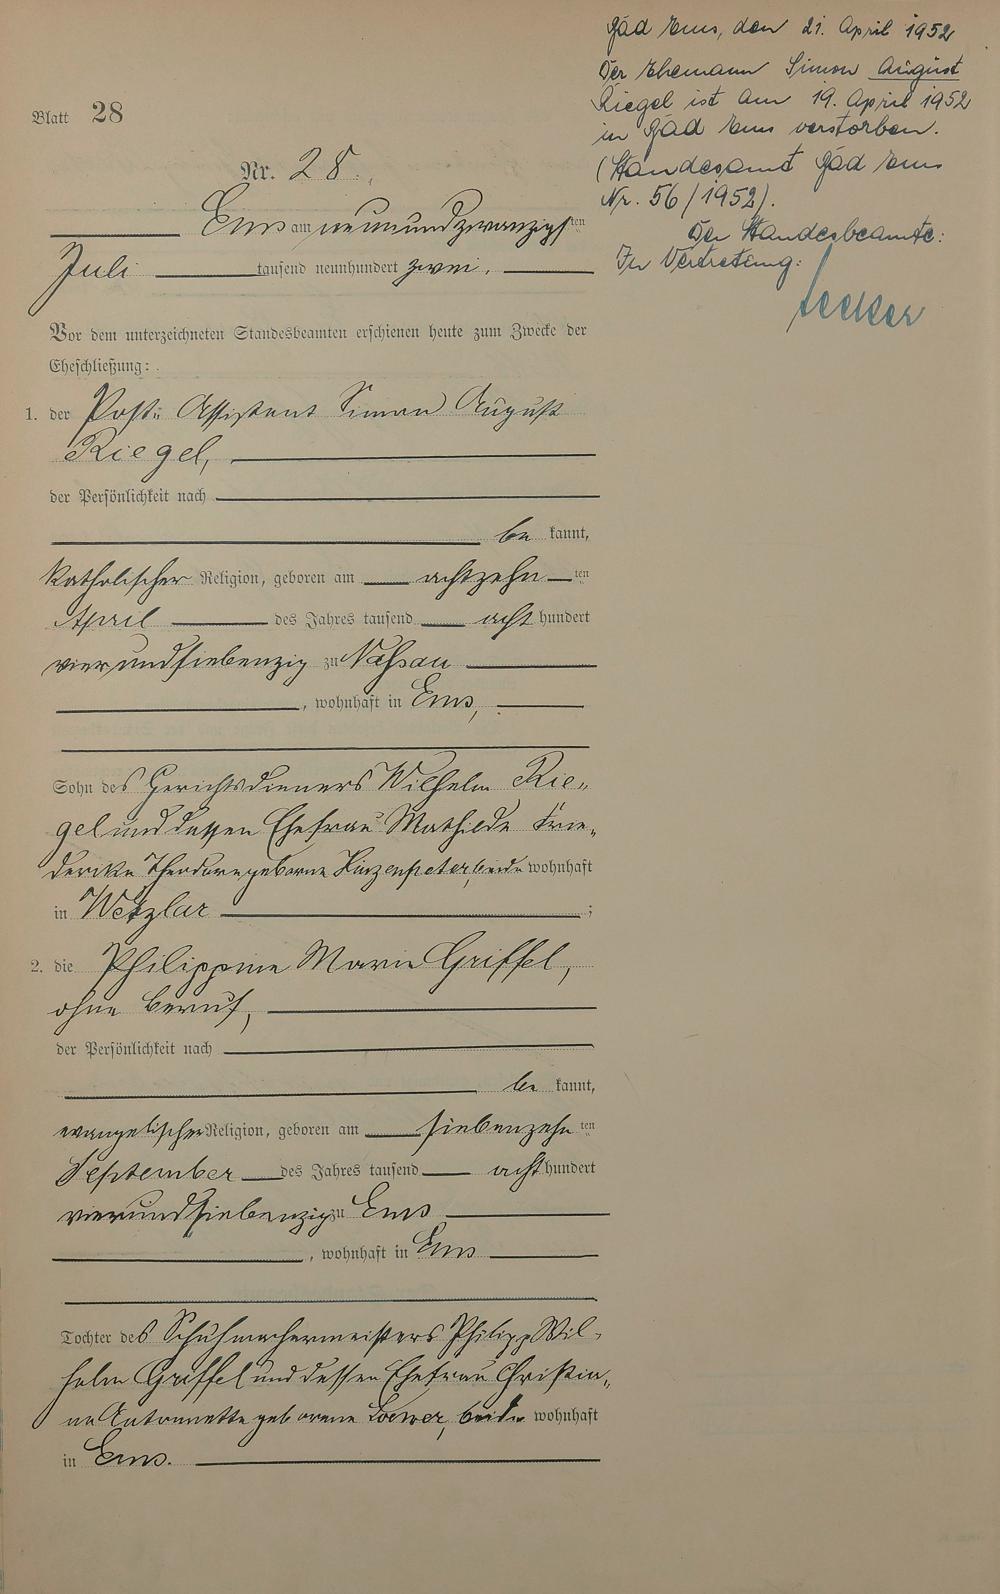 Bad Ems, den 21. April 1952
Der Ehemann Simon August
Riegel ist am 19. April 1952
in Bad Ems verstorben.
(Standesamt Bad Ems
Nr. 56/1952).
Der Standesbeamte:
In Vertretung:
Blatt 28
Nr. 28.
Ems am neunundzwanzigsten
Juli tausend neunhundert zwei.
Vor dem unterzeichneten Standesbeamten erschienen heute zum Zwecke der
Eheschließung:
1. der Post-Assistent Simon August
Riegel,
der Persönlichkeit nach
be kannt,
katholischer Religion, geboren am achtzehn ten
April des Jahres tausend acht hundert
vierundsiebenzig zu Nassau
, wohnhaft in Ems,
Sohn des Gerichtsdieners Wilhelm Rie-
gel und dessen Ehefrau Mathilde Frie-
derike Theodore geborne Hinzenpeter, beide wohnhaft
in Wetzlar ;
2. die Philippine Marie Griffel,
ohne Beruf,
der Persönlichkeit nach
be kannt,
evangelischer Religion, geboren am siebenzehn ten
September des Jahres tausend acht hundert
vierundsiebenzig zu Ems
, wohnhaft in Ems
Tochter des Schuhmachermeisters Philipp Wil-
helm Griffel und dessen Ehefrau Christia-
ne Antonnette geborene Loewer, beide wohnhaft
in Ems.